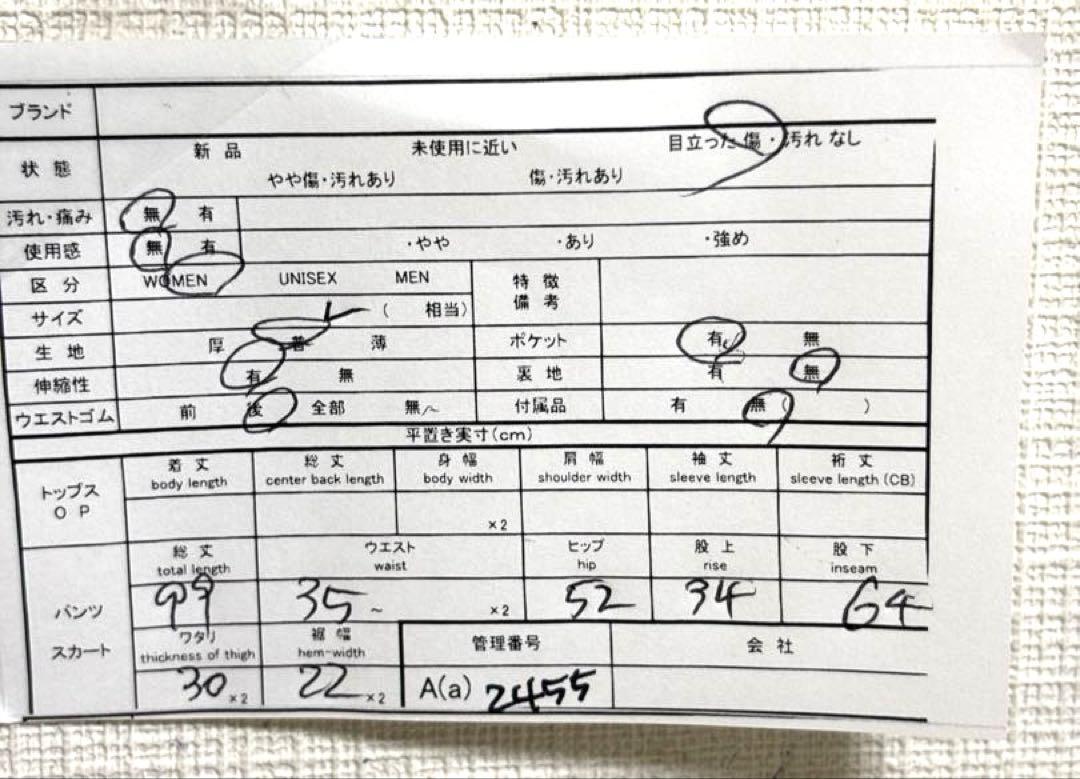 ブランド
状態 新品 未使用に近い 目立った傷・汚れなし
やや傷・汚れあり 傷・汚れあり
汚れ・痛み 無 有
使用感 無 有 ・やや ・あり ・強め
区分 WOMEN UNISEX MEN 特徴備考
サイズ L (相当)
生地 厚 普 薄 ポケット 有 無
伸縮性 有 無 裏地 有 無
ウエストゴム 前 後 全部 無 付属品 有 無( )
平置き実寸(cm)
トップス OP 着丈 総丈 身幅 肩幅 袖丈 裄丈
body length center back length body width shoulder width sleeve length sleeve length (CB)
×2
パンツ スカート 総丈 ウエスト ヒップ 股上 股下
total length waist hip rise inseam
99 35~ ×2 52 34 64
ワタリ 裾幅 管理番号 会社
thickness of thigh hem-width
30 ×2 22 ×2 A(a) 2455